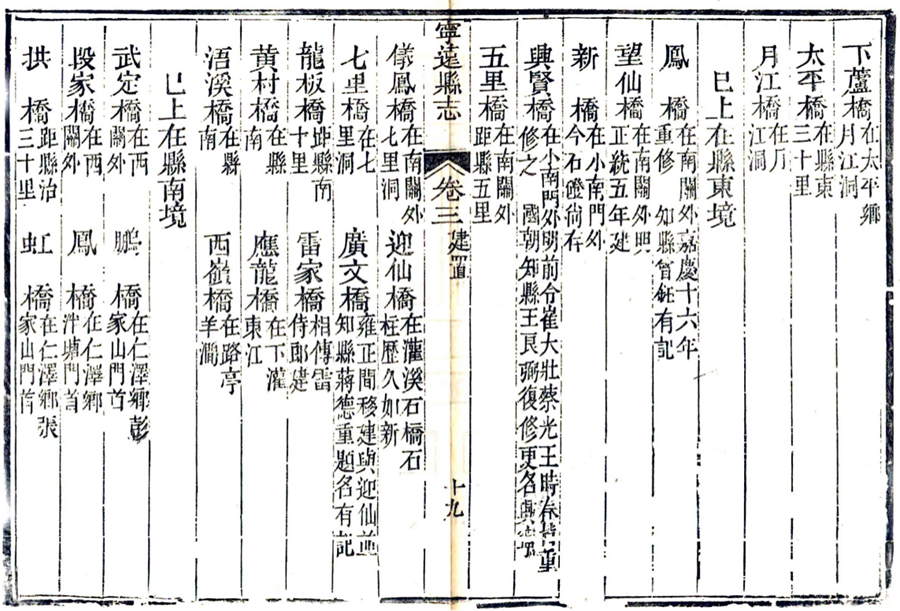 下蘆橋在太平鄉月江洞
太平橋在縣東三十里
月江橋在月江洞
已上在縣東境
鳳橋在南關外嘉慶十六年重修知縣曾鈺有記
望仙橋在南關外興正統五年建
新橋在小南門外今石磴尚存
興賢橋在小南門外明前令崔大壯蔡光王時春皆重修之國朝知縣王良弼復修更名興
五里橋在南關外距縣五里
寧遠縣志卷三建置十九
儀鳳橋在南關外七里洞迎仙橋在灌溪石橋石柱歷久如新
七里橋在七里洞廣文橋雍正間移建與迎仙並知縣蔣德重題名有記
龍板橋距縣南十里雷家橋相傳雷侍郎建
黄村橋在縣南應龍橋在下灌東江
浯溪橋在縣南西嶺橋在路亭羊澗
已上在縣南境
武定橋在西關外鵬橋在仁澤鄉彭家山門首
段家橋在西關外鳳橋在仁澤鄉泮塘門首
拱橋距縣治三十里虹橋在仁澤鄉張家山門首